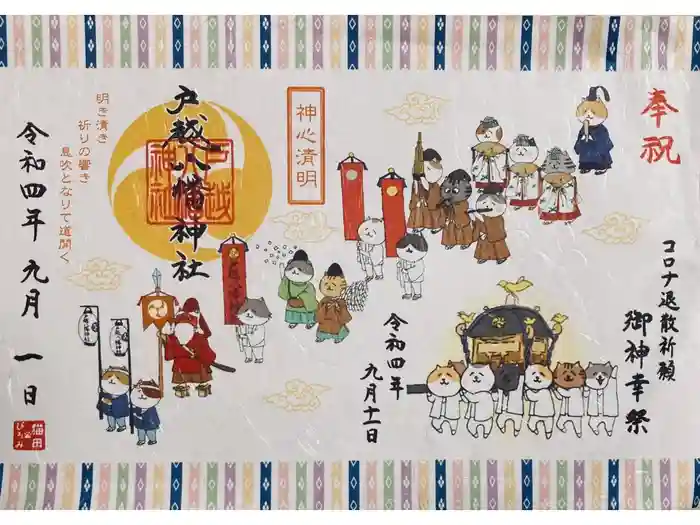 奉祝
コロナ退散祈願
御神幸祭
令和四年
九月十一日
神心清明
戸越八幡神社
戸越
神社
明き清き
祈りの響き
息吹となりて道開く
令和四年九月一日
猫田
ひろみ